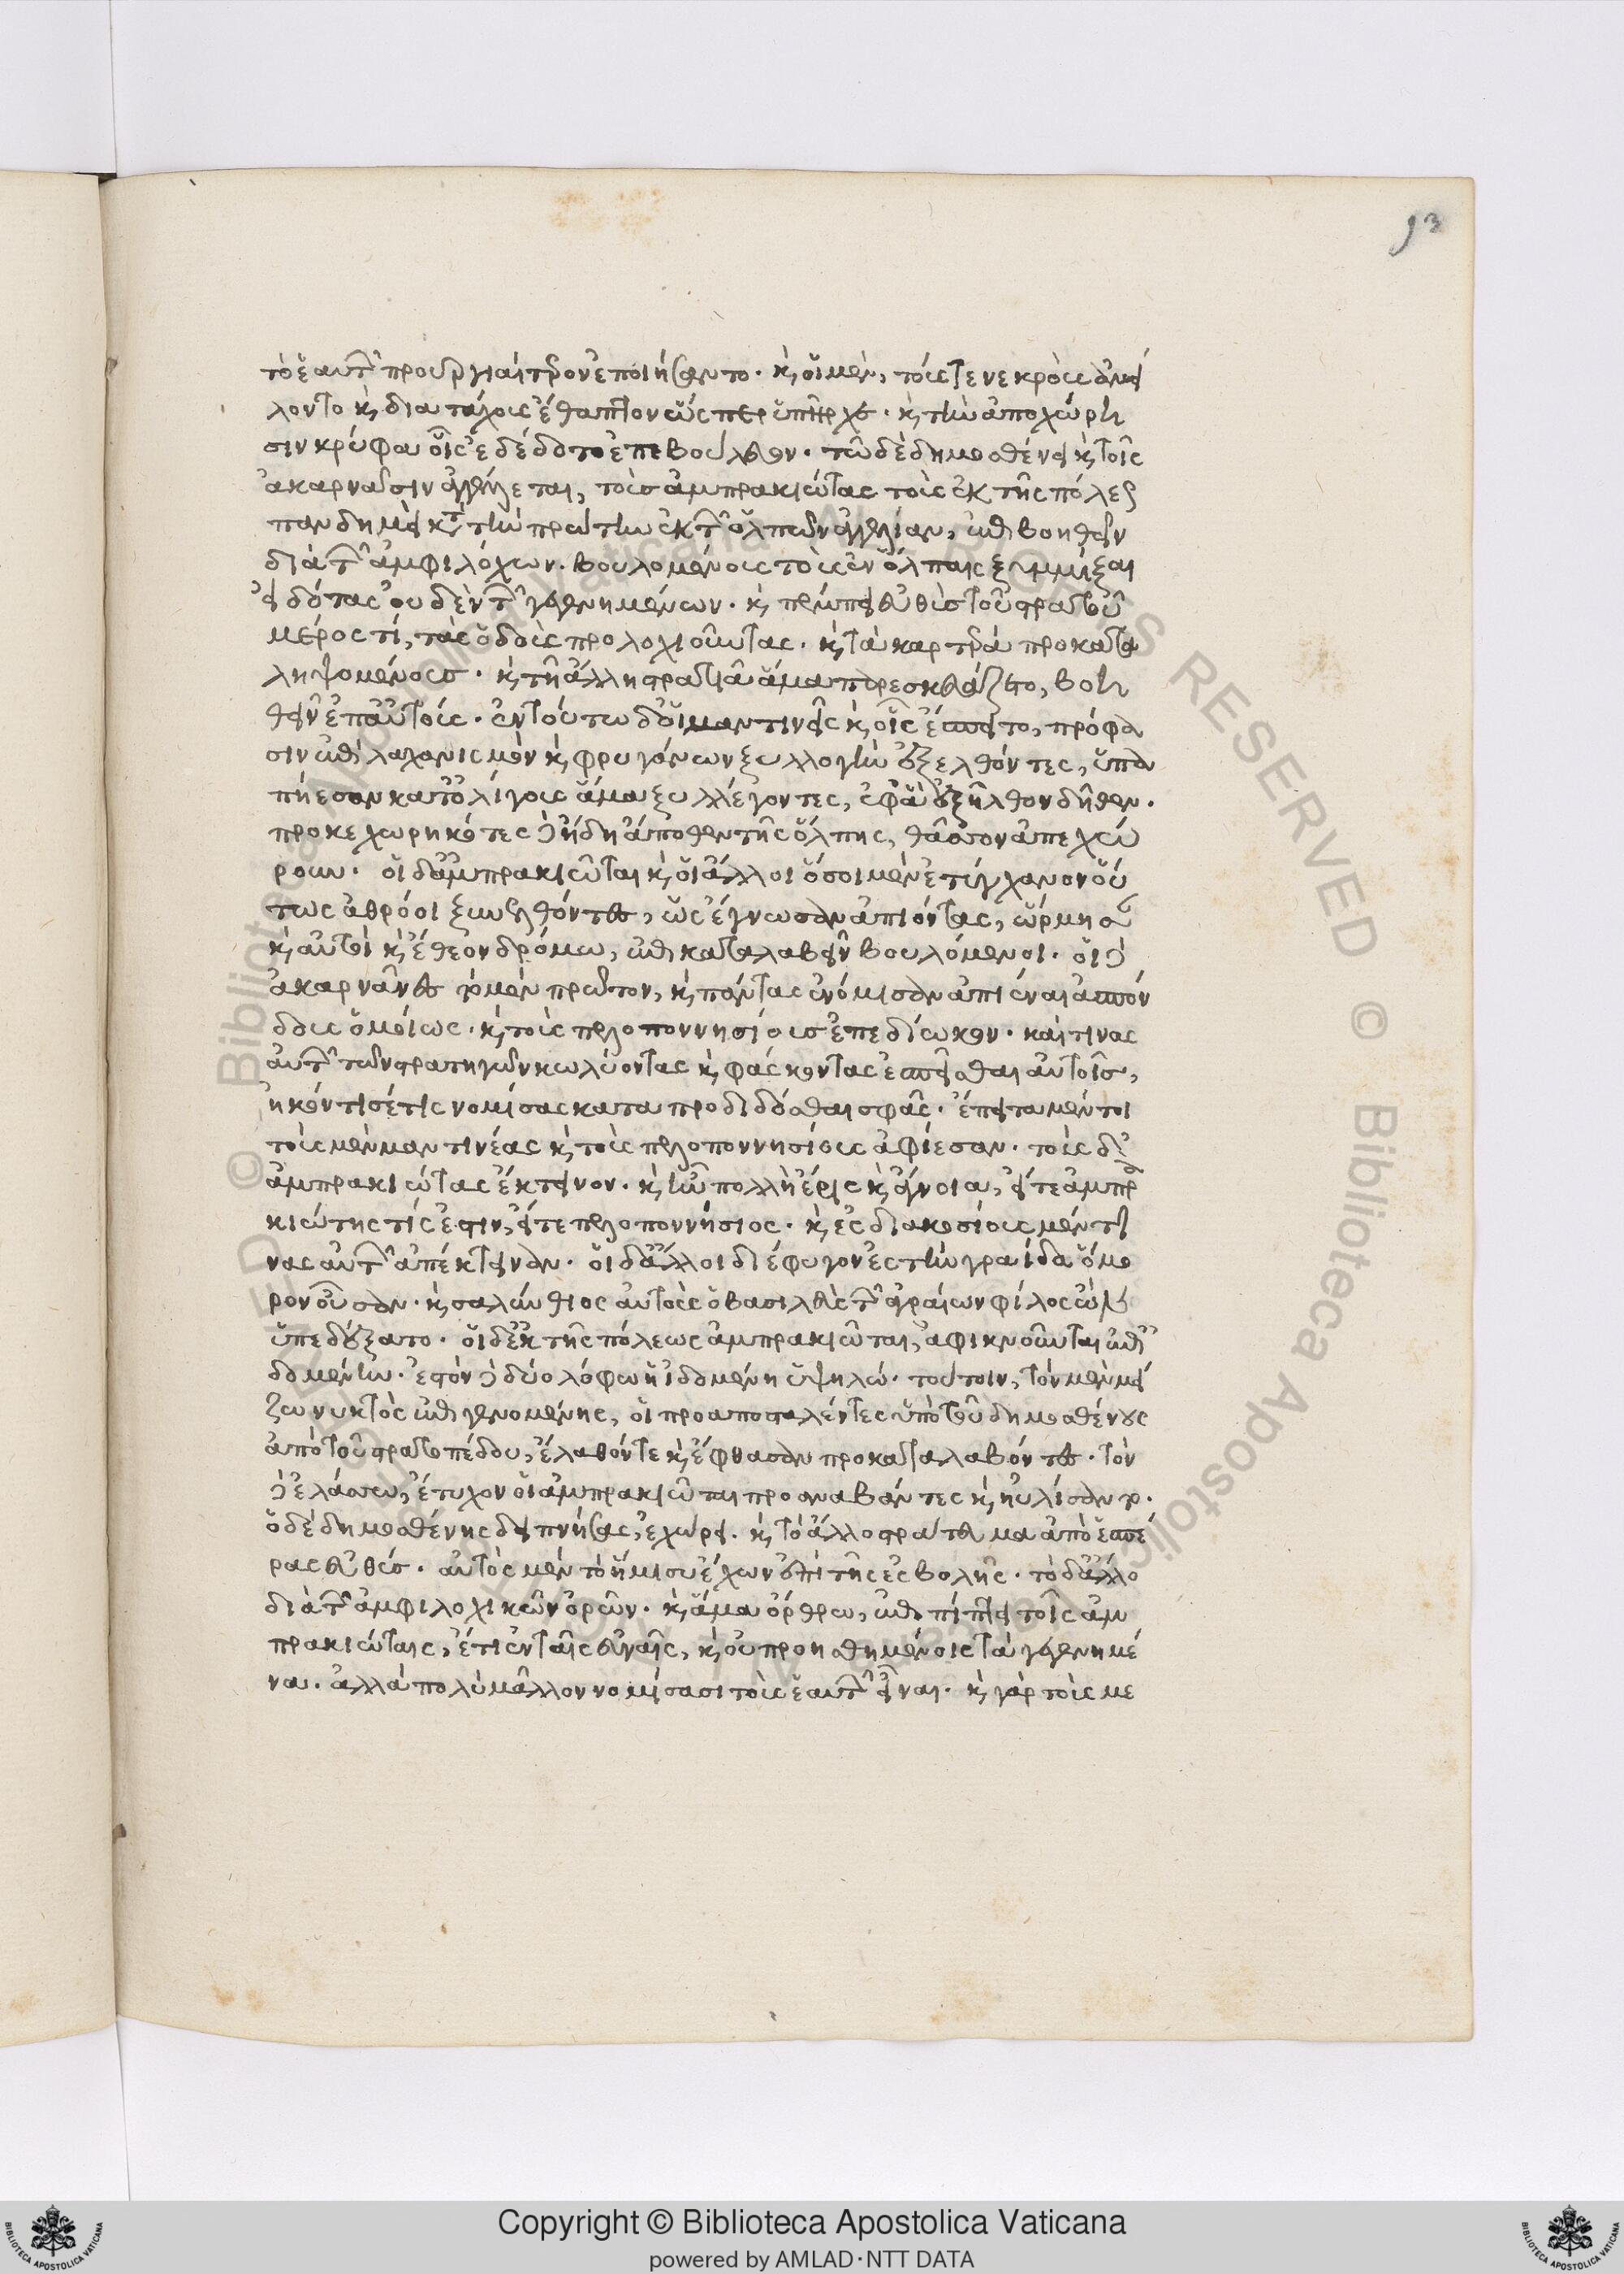 93
τὸ ἑαυτῶν προυργιαίτερον ἐποιήσαντο. καὶ οἱ μὲν, τούς τε νεκροὺς ἀνεί
λοντο καὶ διατάχους ἔθαπτον ὥσπερ ὑπῆρχε. καὶ τὴν ἀποχώρη
σιν κρύφα οἷς ἐδέδοτο ἐπεβούλευον. τῶ δὲ δημοσθένει καὶ τοῖς
ἀκαρνᾶσιν ἀγγέλεται, τοὺσ ἀμπρακιώτας τοὺς ἐκ τῆς πόλεως
πανδημεὶ κατὰ τὴν πρώτην ἐκ τῶν ὀλπῶν ἀγγελίαν, ἐπιβοηθεῖν
διὰ τῶν ἀμφιλόχων. βουλομένους τοῖς ἐν ὄλπαις ξυμμίξαι
εἰδότας οὐδὲν τῶν γεγενημένων. καὶ πέμπει εὐθὺσ τοῦ στρατοῦ
μέρος τί, τὰς ὁδοὺς προλοχιοῦντας. καὶ τὰ καρτερὰ προκατα
ληψομένουσ. καὶ τῆ ἄλλη στρατιᾶ ἅμα παρεσκευάζετο, βοη
θεῖν ἐπ' αὐτούς. ἐν τούτω δ' οἱ μαντινεῖς καὶ οἷς ἔσπειστο, πρόφα
σιν ἐπὶ λαχανισμὸν καὶ φρυγάνων ξυλλογὴν ἐξελθόντες, ὑπα
πήεσαν κατ' ὀλίγους ἅμα ξυλλέγοντες, ἐφ' ἃ ἐξῆλθον δῆθεν.
προκεχωρηκότες δὲ ἤδη ἄποθεν τῆς ὄλπης, θᾶσσον ἀπεχώ
ρουν. οἱ δ' ἀμπρακιῶται καὶ οἱ ἄλλοι ὅσοι μὲν ἐτύγχανον οὕ
τως ἀθρόοι ξυνελθόντες, ὡς ἔγνωσαν ἀπιόντας, ὥρμησαν
καὶ αὐτοὶ καὶ ἔθεον δρόμω, ἐπικαταλαβεῖν βουλόμενοι. οἱ δὲ
ἀκαρνᾶνες τὸ μὲν πρῶτον, καὶ πάντας ἐνόμισαν ἀπιέναι ἀσπόν
δους ὁμοίως. καὶ τοὺς πελοποννησίουσ ἐπεδίωκον. καί τινας
αὐτῶν τῶν στρατηγῶν κωλύοντας καὶ φάσκοντας ἐσπεῖσθαι αὐτοῖσ,
ἠκόντισέ τις νομίσας καταπροδίδοσθαι σφᾶς. ἔπειτα μέντοι
τοὺς μὲν μαντινέας καὶ τοὺς πελοποννησίους ἀφίεσαν. τοὺς δ'
ἀμπρακιώτας ἔκτεινον. καὶ ἦν πολλὴ ἔρις καὶ ἄγνοια, εἴτε ἀμπρα
κιώτης τίς ἐστιν, εἴτε πελοποννήσιος. καὶ ἐς διακοσίους μέν τι
νας αὐτῶν ἀπέκτειναν. οἱ δ' ἄλλοι διέφυγον ἐς τὴν γραίδα ὅμο
ρον οὖσαν. καὶ σαλύνθιος αὐτοὺς ὁ βασιλεὺς τῶν ἀγραίων φίλος ὢν
ὑπεδέξατο. οἱ δ' ἐκ τῆς πόλεως ἀμπρακιῶται, ἀφικνοῦνται ἐπ' ἰ
δομένην. ἐστὸν δὲ δύο λόφω ἡ ἰδομένη ὑψηλώ. τούτοιν, τὸν μὲν μεί
ζω νυκτὸς ἐπιγενομένης, οἱ προαποσταλέντες ὑπὸ τοῦ δημοσθένους
ἀπὸ τοῦ στρατοπέδου, ἔλαθόν τε καὶ ἔφθασαν προκαταλαβόντες. τὸν
δὲ ἐλάσσω, ἔτυχον οἱ ἀμπρακιῶται προαναβάντες καὶ ηὐλίσαντο.
ὁ δὲ δημοσθένης δειπνήσας, ἐχώρει. καὶ τὸ ἄλλο στράτευμα ἀπὸ ἑσπέ
ρας εὐθύσ. αὐτὸς μὲν τὸ ἥμισυ ἔχων ἐπὶ τῆς ἐςβολῆς. τὸ δ' ἄλλο
διὰ τῶν ἀμφιλοχικῶν ὀρῶν. καὶ ἅμα ὄρθρω, ἐπιπίπτει τοῖς ἀμ
πρακιώταις, ἔτι ἐν ταῖς εὐναῖς, καὶ οὐ προησθημένοις τὰ γεγενημέ
να. ἀλλὰ πολὺ μᾶλλον νομίσασι τοὺς ἑαυτῶν εἶναι. καὶ γὰρ τοὺς με
© Biblioteca Apostolica Vaticana ALL RIGHTS RESERVED
Copyright © Biblioteca Apostolica Vaticana
powered by AMLAD·NTT DATA